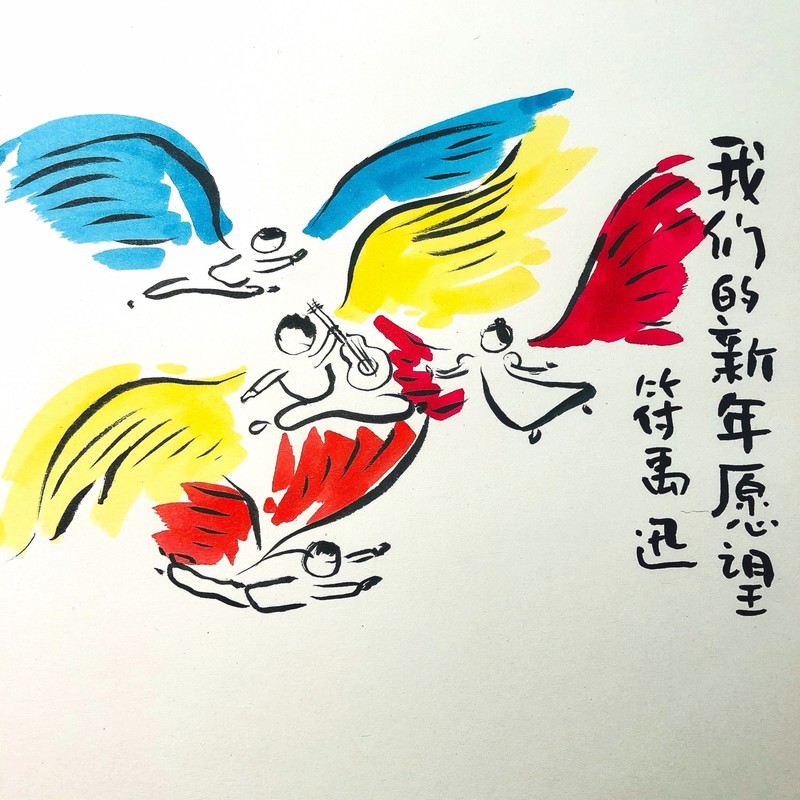 我们的新年愿望
符禹迅